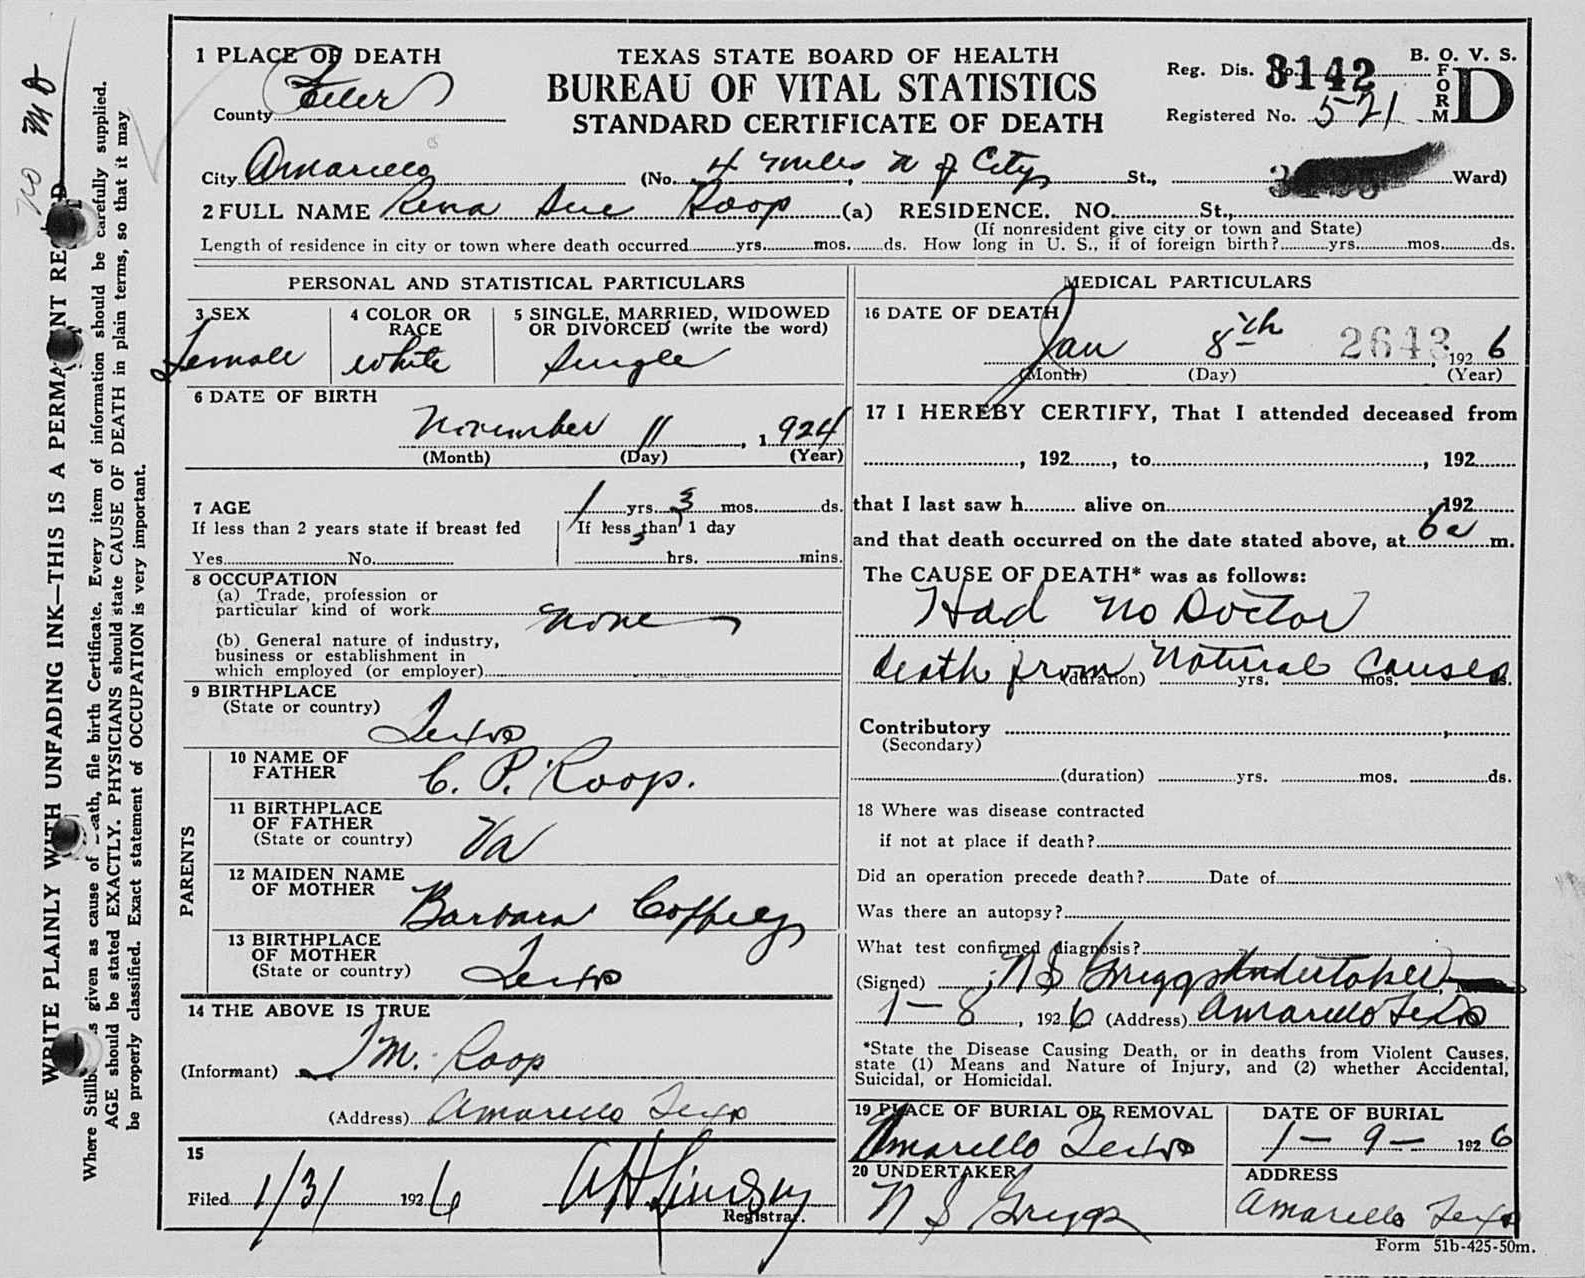 no MD
WRITE PLAINLY WITH UNFADING INK—THIS IS A PERMANENT RECORD
Where Stillb s given as cause of ath, file birth Certificate. Every item of information should be carefully supplied.
AGE should be stated EXACTLY. PHYSICIANS should state CAUSE OF DEATH in plain terms, so that it may
be properly classified. Exact statement of OCCUPATION is very important.
1 PLACE OF DEATH
County
TEXAS STATE BOARD OF HEALTH
BUREAU OF VITAL STATISTICS
STANDARD CERTIFICATE OF DEATH
B. O. V. S.
FORM D
Reg. Dis. No. 3142
Registered No. 521
City Amarillo (No. 4 miles N of City St., Ward)
2 FULL NAME Rena Sue Roop (a) RESIDENCE. NO. St.,
(If nonresident give city or town and State)
Length of residence in city or town where death occurred yrs. mos. ds. How long in U. S., if of foreign birth? yrs. mos. ds.
PERSONAL AND STATISTICAL PARTICULARS
3 SEX
Female
4 COLOR OR RACE
white
5 SINGLE, MARRIED, WIDOWED OR DIVORCED (write the word)
Single
6 DATE OF BIRTH
November 11, 1924
(Month) (Day) (Year)
7 AGE
1 yrs. 3 mos. ds.
If less than 2 years state if breast fed
Yes No
If less than 1 day
hrs. mins.
8 OCCUPATION
(a) Trade, profession or
particular kind of work none
(b) General nature of industry,
business or establishment in
which employed (or employer)
9 BIRTHPLACE
(State or country)
Texas
PARENTS
10 NAME OF FATHER
C. P. Roop.
11 BIRTHPLACE OF FATHER
(State or country)
Va
12 MAIDEN NAME OF MOTHER
Barbara Coffey
13 BIRTHPLACE OF MOTHER
(State or country)
Texas
14 THE ABOVE IS TRUE
(Informant) M. Roop
(Address) Amarillo Texas
15
Filed 1/31 1926 A H Lindsey
Registrar.
MEDICAL PARTICULARS
16 DATE OF DEATH
Jan 8th 2643, 1926
(Month) (Day) (Year)
17 I HEREBY CERTIFY, That I attended deceased from
, 192 , to , 192
that I last saw h alive on 192
and that death occurred on the date stated above, at 6a m.
The CAUSE OF DEATH* was as follows:
Had No Doctor
death from Natural Causes
(duration) yrs. mos. ds.
Contributory
(Secondary)
(duration) yrs. mos. ds.
18 Where was disease contracted
if not at place if death?
Did an operation precede death? Date of
Was there an autopsy?
What test confirmed diagnosis?
(Signed) N S Griggs Undertaker
1-8, 1926 (Address) Amarillo Texas
*State the Disease Causing Death, or in deaths from Violent Causes,
state (1) Means and Nature of Injury, and (2) whether Accidental,
Suicidal, or Homicidal.
19 PLACE OF BURIAL OR REMOVAL
Amarillo Texas
DATE OF BURIAL
1-9- 1926
20 UNDERTAKER
N S Griggs
ADDRESS
Amarillo Texas
Form 51b-425-50m.